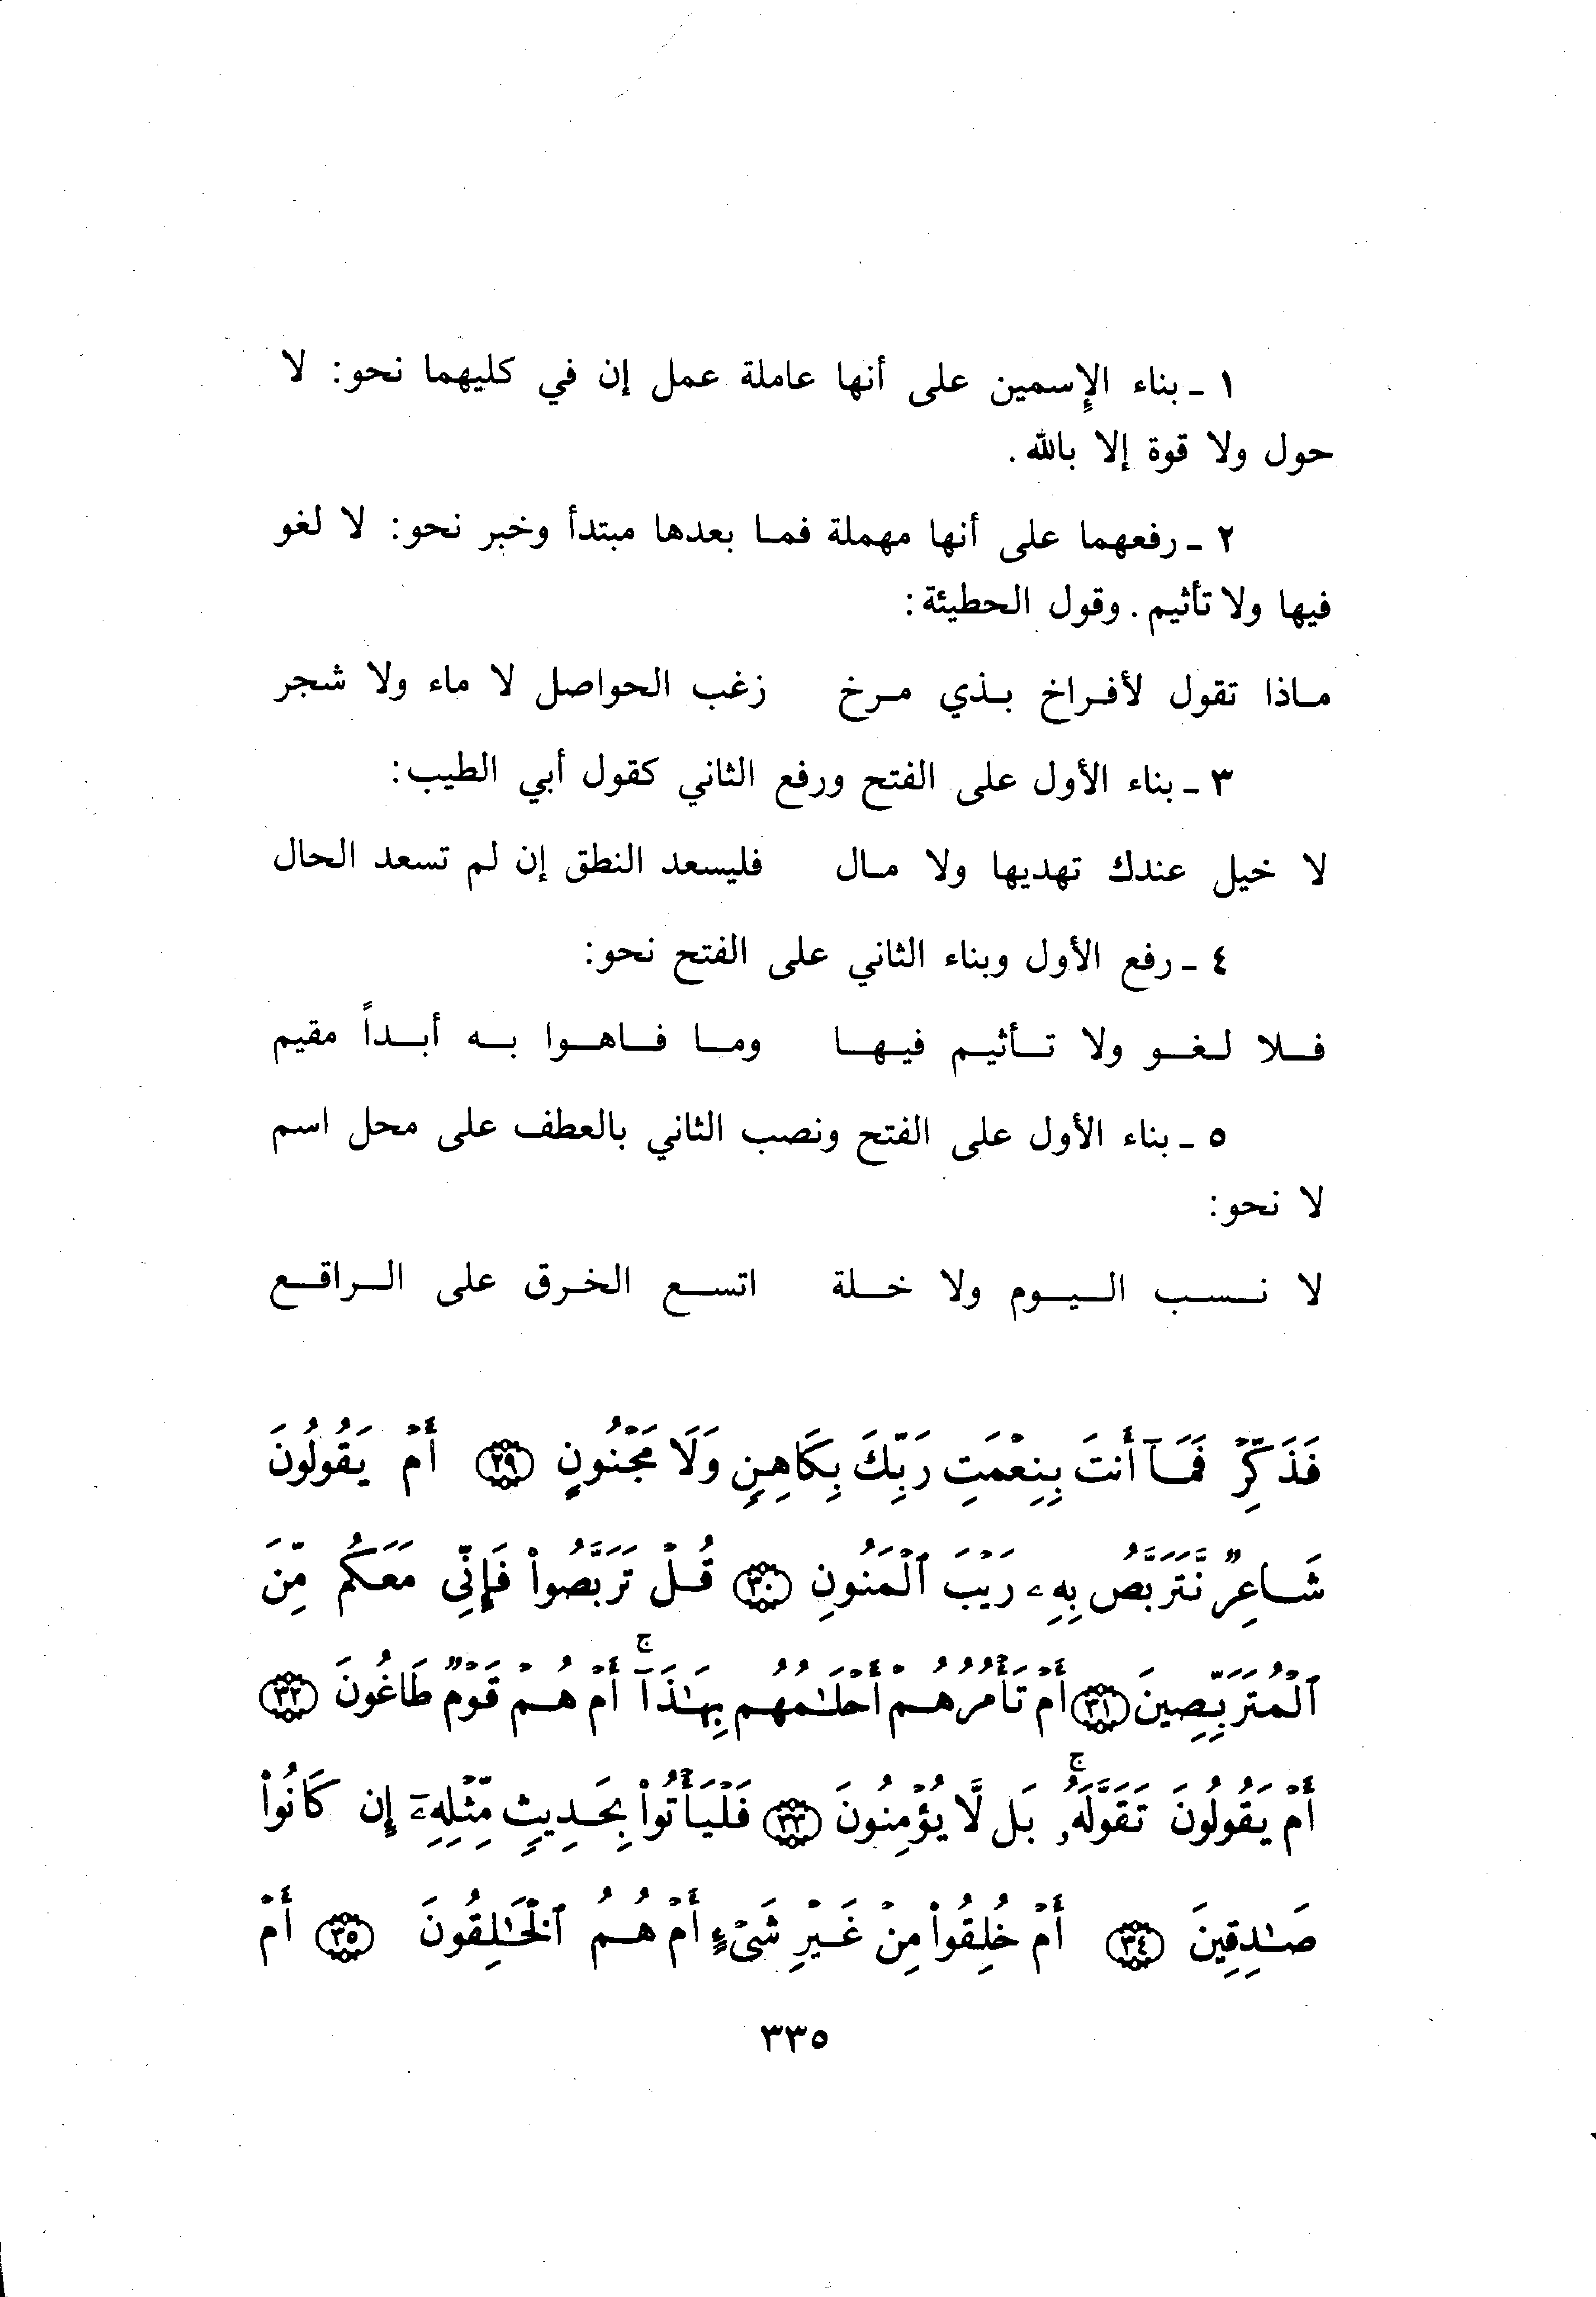 ١ ـ بناء الإسمين على أنها عاملة عمل إن في كليهما نحو: لا
حول ولا قوة إلا بالله.
٢ ـ رفعهما على أنها مهملة فما بعدها مبتدأ وخبر نحو: لا لغو
فيها ولا تأثيم. وقول الحطيئة:
ماذا تقول لأفراخ بذي مرخ زغب الحواصل لا ماء ولا شجر
٣ ـ بناء الأول على الفتح ورفع الثاني كقول أبي الطيب:
لا خيل عندك تهديها ولا مال فليسعد النطق إن لم تسعد الحال
٤ ـ رفع الأول وبناء الثاني على الفتح نحو:
فلا لغو ولا تأثيم فيها وما فاهوا به أبداً مقيم
٥ ـ بناء الأول على الفتح ونصب الثاني بالعطف على محل اسم
لا نحو:
لا نسب اليوم ولا خلة اتسع الخرق على الراقع
فَذَكِّرْ فَمَآ أَنتَ بِنِعْمَتِ رَبِّكَ بِكَاهِنٍ وَلَا مَجْنُونٍ ٢٩ أَمْ يَقُولُونَ
شَاعِرٌ نَّتَرَبَّصُ بِهِۦ رَيْبَ ٱلْمَنُونِ ٣٠ قُلْ تَرَبَّصُواْ فَإِنِّي مَعَكُم مِّنَ
ٱلْمُتَرَبِّصِينَ ٣١ أَمْ تَأْمُرُهُمْ أَحْلَٰمُهُم بِهَٰذَآ ۚ أَمْ هُمْ قَوْمٌ طَاغُونَ ٣٢
أَمْ يَقُولُونَ تَقَوَّلَهُۥ ۚ بَل لَّا يُؤْمِنُونَ ٣٣ فَلْيَأْتُواْ بِحَدِيثٍ مِّثْلِهِۦٓ إِن كَانُواْ
صَٰدِقِينَ ٣٤ أَمْ خُلِقُواْ مِنْ غَيْرِ شَيْءٍ أَمْ هُمُ ٱلْخَٰلِقُونَ ٣٥ أَمْ
٣٣٥